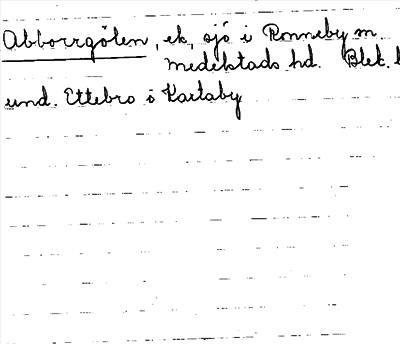 Abborrgölen, ek, sjö i Ronneby m.
Medelstads hd. Blek. l
und. Ettebro o Karlaby